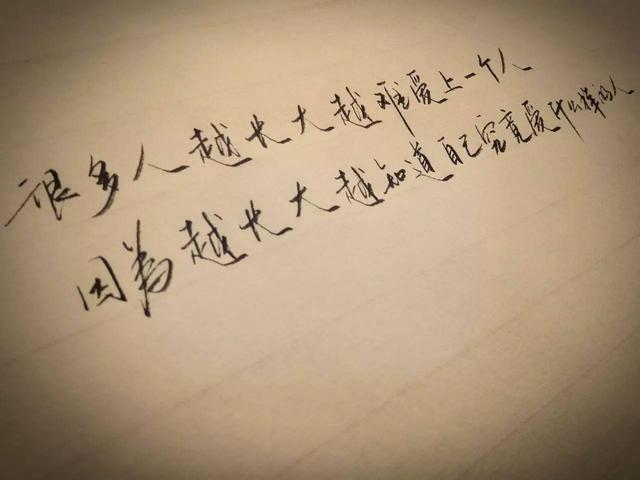 很多人越长大越难爱上一个人
因為越长大越知道自己究竟爱什么样的人